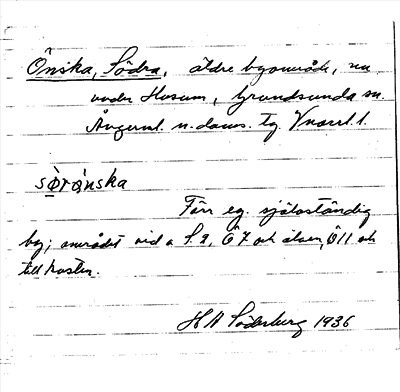 Önska, Södra, äldre byområde, nu
under Husum, Grundsunda sn.
Ångerml. n. doms. tg Vnorrl. l.
sø̀rǫ̀nska
Förr eg. självständig
by; området vid a S.2, Ö7 och älven, Ö11 och
till kusten.
H A Söderberg 1936